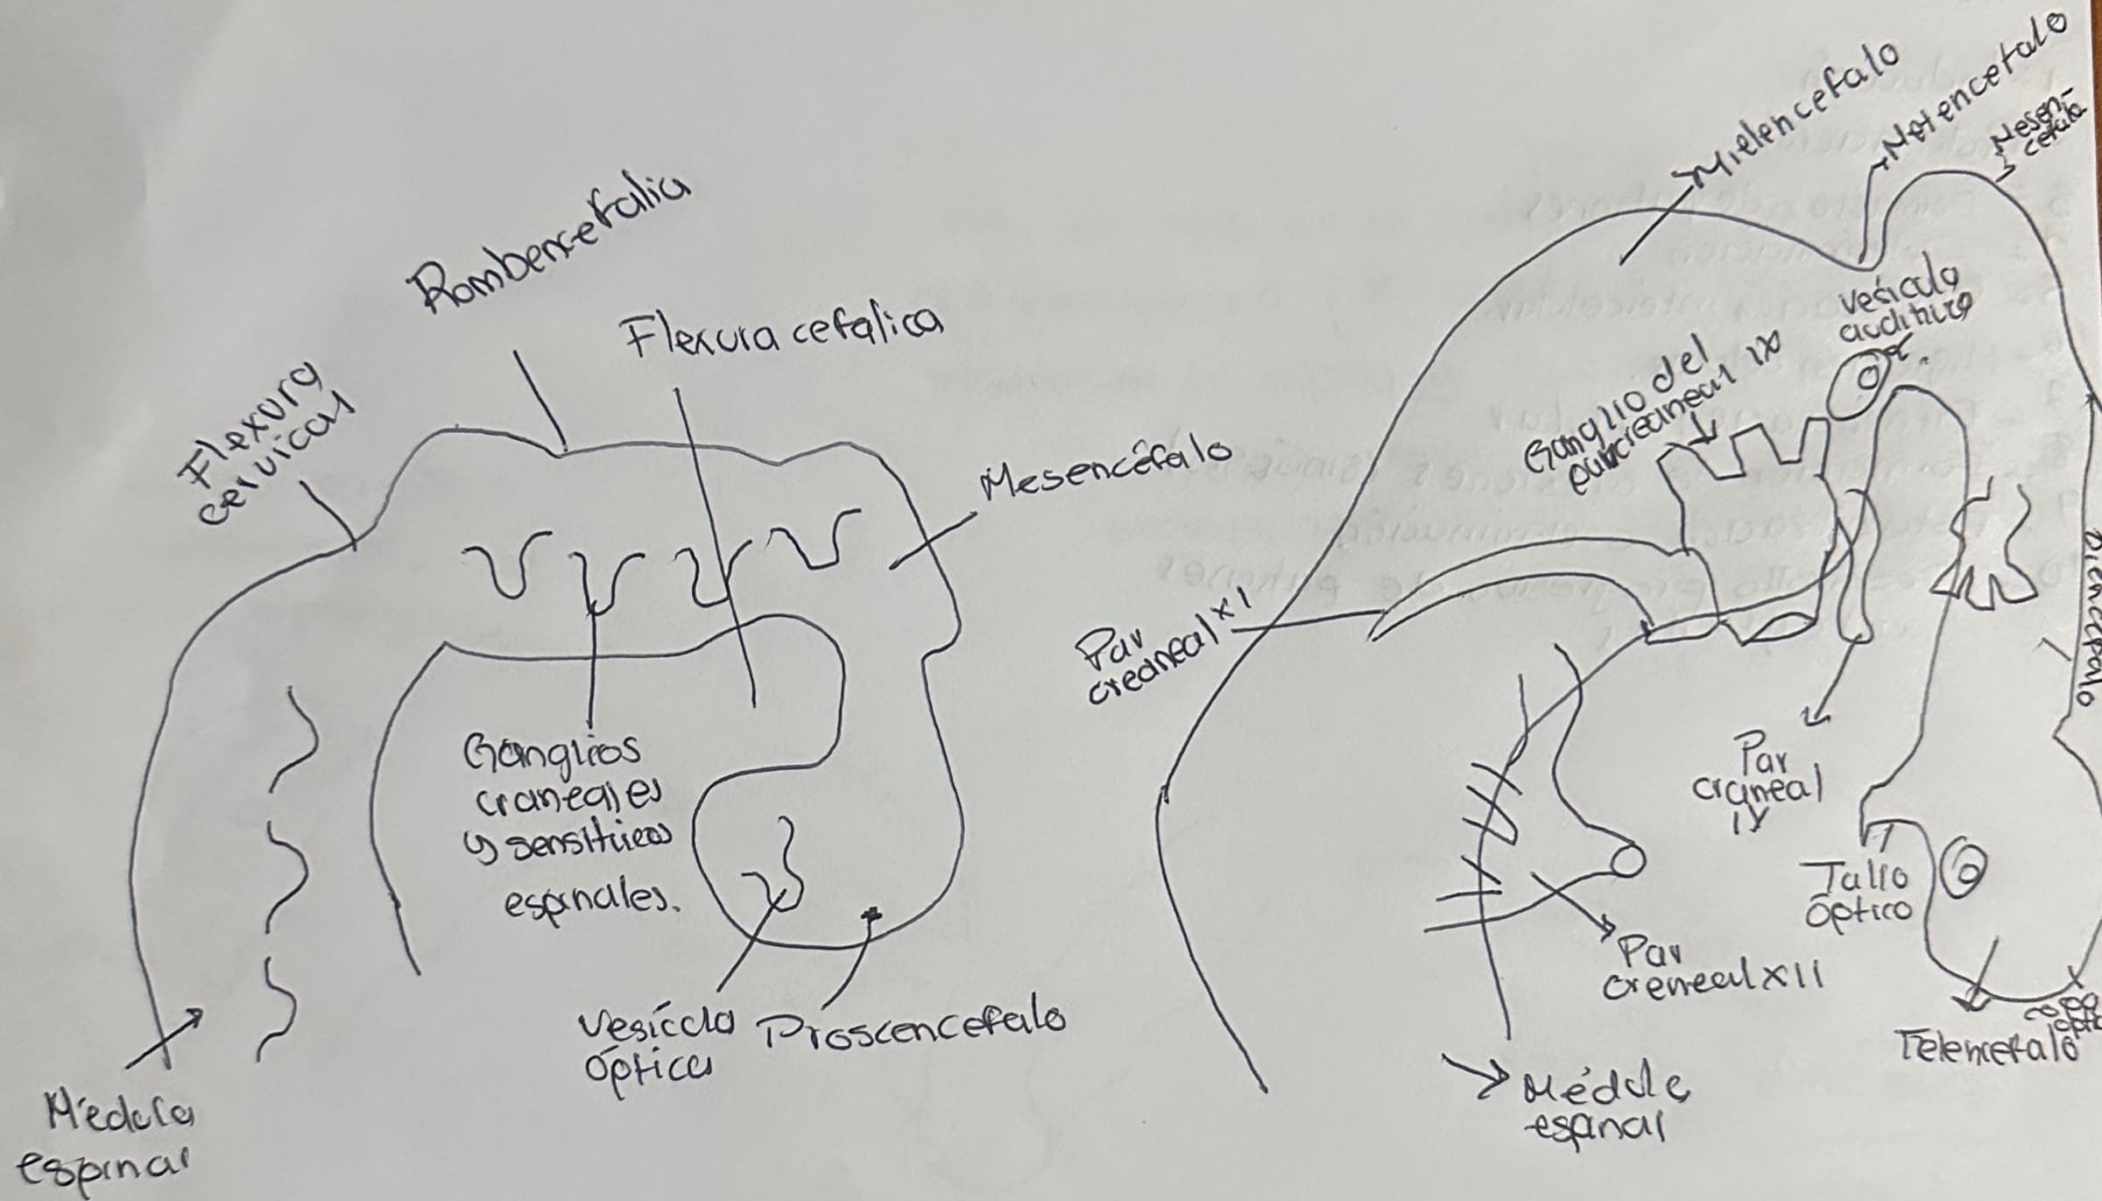 Rombencefalia
Flexura cefalica
Flexura
cervical
Mesencéfalo
Ganglios
craneales
y sensitivos
espinales.
Vesícula
óptica
Proscencefalo
Médula
espinal
Mielencefalo
Metencefalo
Mesen-
cefalo
Vesicula
auditiva
Ganglio del
par creaneal IX
Par
creaneal XI
Diencefalo
Par
craneal
IV
Tallo
óptico
Par
creneal XII
Telencefalo
Copa
optic
Médula
espinal